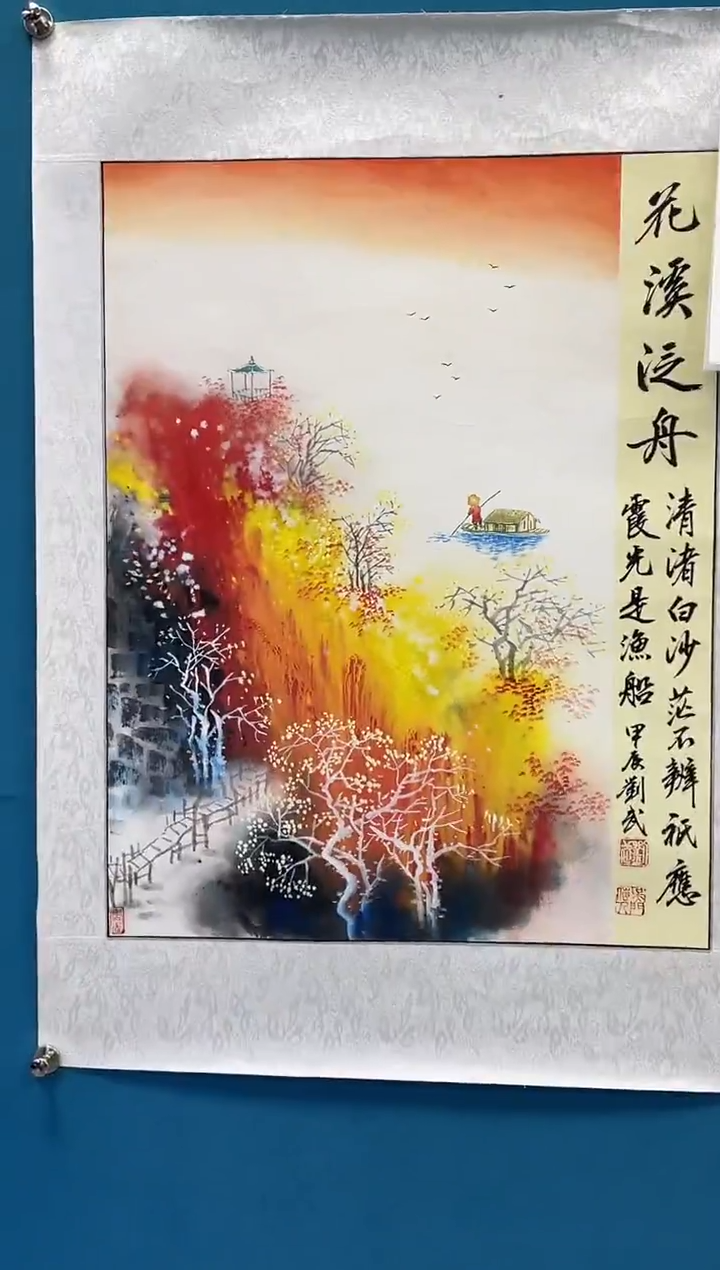 花溪泛舟
清渚白沙茫不辨祇應
霞光是漁船
甲辰劉武